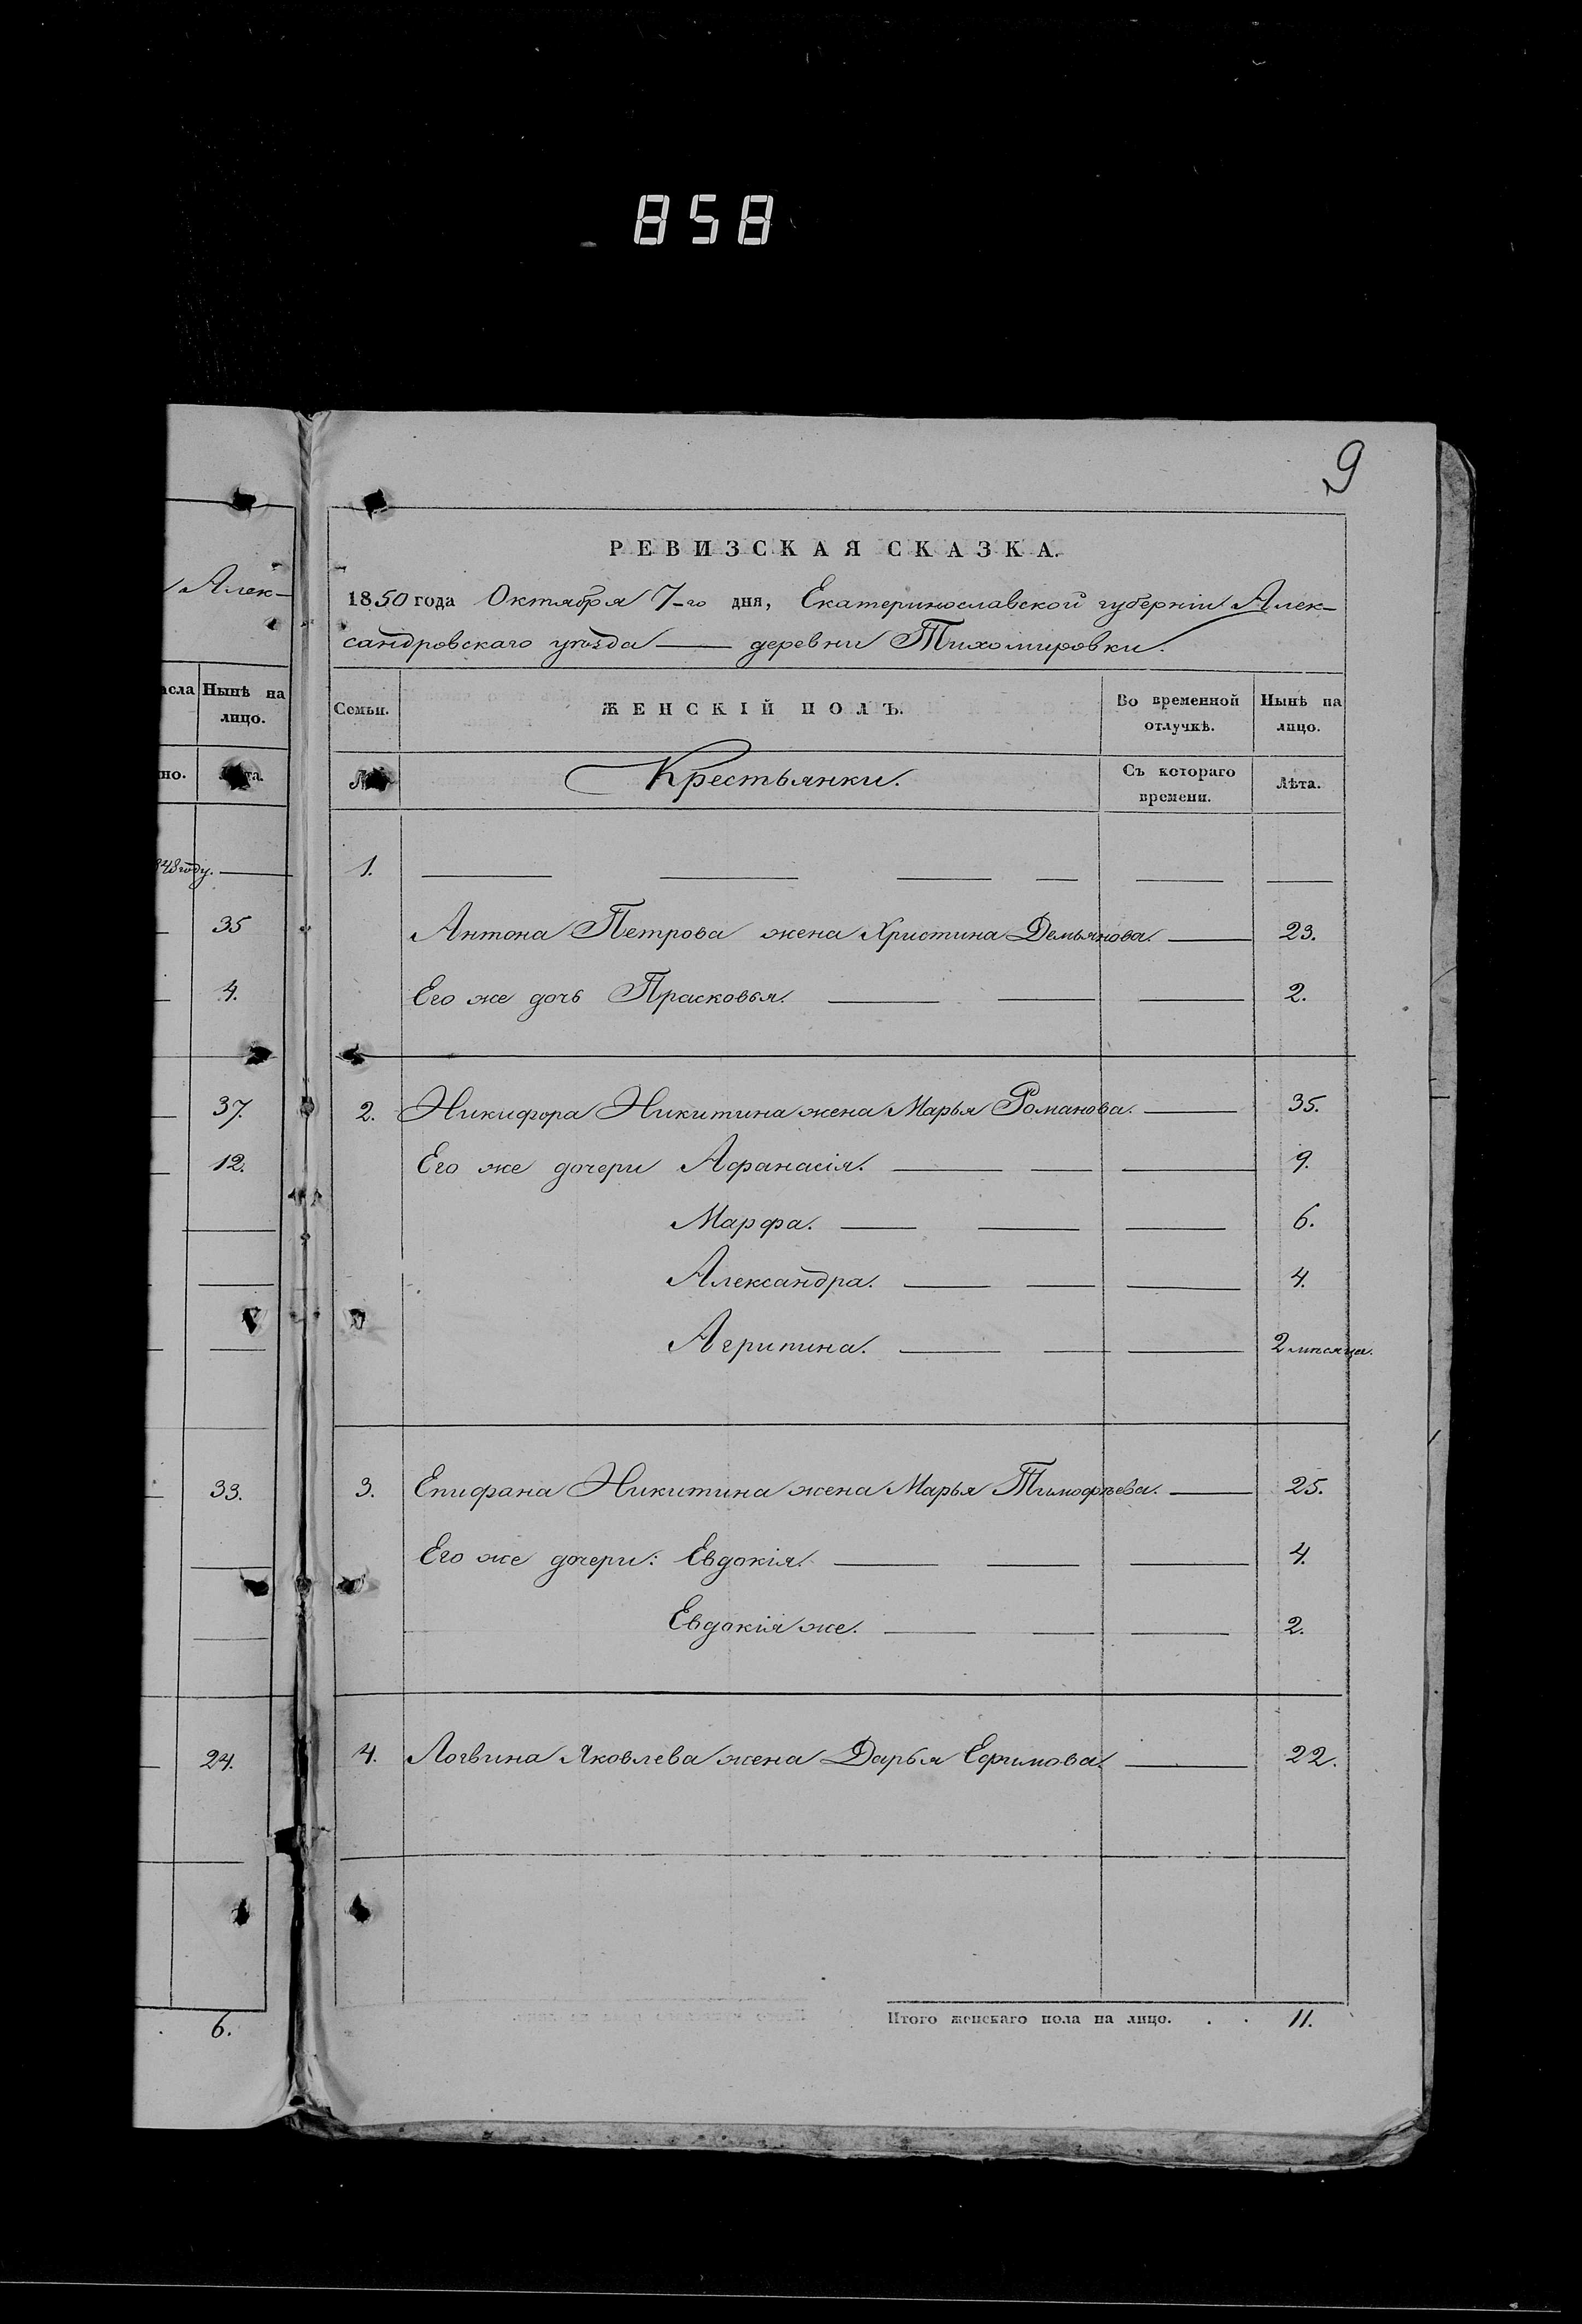 858
9
Алек-
РЕВИЗСКАЯ СКАЗКА.
1850 года Октября 7-го дня, Екатеринославской губерніи Алек-
сандровскаго уѣзда — деревни Тихомировки.
Нынѣ на
лицо.
Семьи.
ЖЕНСКІЙ ПОЛЪ.
Во временной
отлучкѣ.
Нынѣ на
лицо.
Крестьянки.
Съ котораго
времени.
Лѣта.
году.
1.
35
Антона Петрова жена Христина Демьянова. 23.
4.
Его же дочь Прасковья. 2.
37.
2. Никифора Никитина жена Марья Романова. 35.
12.
Его же дочери Афанасія. 9.
Марфа. 6.
Александра. 4.
Агрипина. 2 мѣсяца.
33.
3. Епифана Никитина жена Марья Тимофѣева. 25.
Его же дочери: Евдокія. 4.
Евдокія же. 2.
24.
4. Логвина Яковлева жена Дарья Ефимова. 22.
6.
Итого женскаго пола на лицо. . . 11.